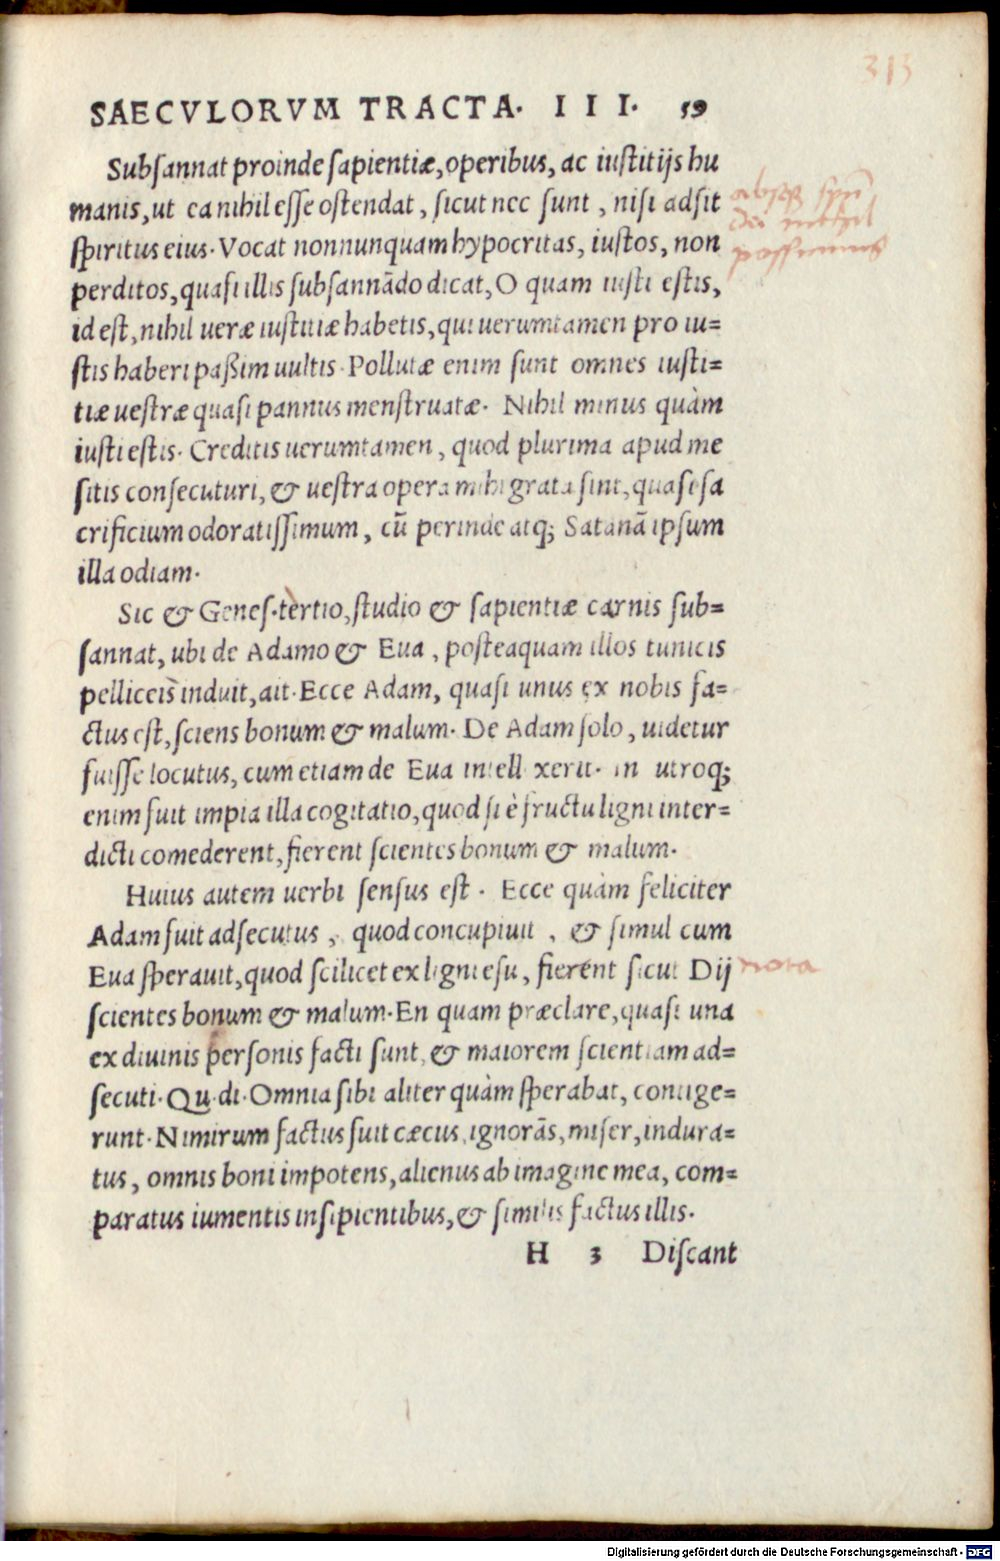 313
SAECVLORVM TRACTA. III. 59
Subsannat proinde sapientiæ, operibus, ac iustitijs hu
manis, ut ea nihil esse ostendat, sicut nec sunt, nisi adsit
spiritus eius. Vocat nonnunquam hypocritas, iustos, non
perditos, quasi illis subsannādo dicat, O quam iusti estis,
id est, nihil ueræ iustitiæ habetis, qui uerumtamen pro iu=
stis haberi paßim uultis. Pollutæ enim sunt omnes iusti=
tiæ uestræ quasi pannus menstruatæ. Nihil minus quàm
iusti estis. Creditis uerumtamen, quod plurima apud me
sitis consecuturi, & uestra opera mihi grata sint, quasi sa
crificium odoratissimum, cū perinde atq; Satanā ipsum
illa odiam.
Sic & Genes. tertio, studio & sapientiæ carnis sub=
sannat, ubi de Adamo & Eua, posteaquam illos tunicis
pelliceis induit, ait. Ecce Adam, quasi unus ex nobis fa=
ctus est, sciens bonum & malum. De Adam solo, uidetur
fuisse locutus, cum etiam de Eua intellexerit. in utroq;
enim fuit impia illa cogitatio, quod si è fructu ligni inter=
dicti comederent, fierent scientes bonum & malum.
Huius autem uerbi sensus est. Ecce quàm feliciter
Adam fuit adsecutus, quod concupiuit, & simul cum
Eua sperauit, quod scilicet ex ligni esu, fierent sicut Dij
scientes bonum & malum. En quam præclare, quasi una
ex diuinis personis facti sunt, & maiorem scientiam ad=
secuti. Qu. di. Omnia sibi aliter quàm sperabat, contige=
runt. Nimirum factus fuit cæcus, ignorās, miser, indura=
tus, omnis boni impotens, alienus ab imagine mea, com=
paratus iumentis insipientibus, & similis factus illis.
H 3 Discant
absq; spū
dei nihil
possumus
nota
Digitalisierung gefördert durch die Deutsche Forschungsgemeinschaft - DFG